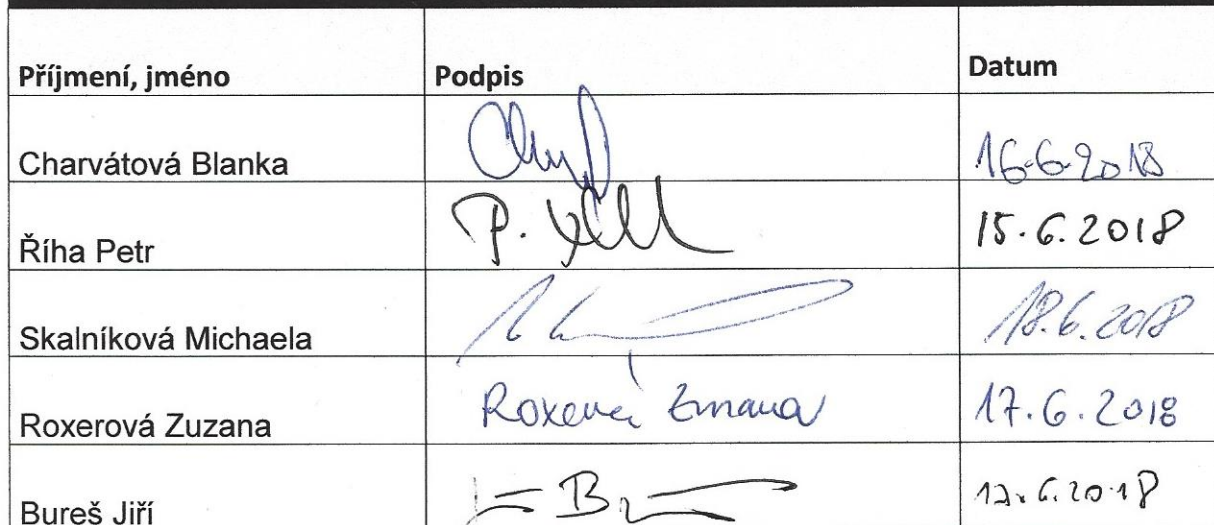 Příjmení, jméno Podpis Datum
Charvátová Blanka 16.6.2018
Říha Petr P. 15.6.2018
Skalníková Michaela 18.6.2018
Roxerová Zuzana Roxerová Zuzana 17.6.2018
Bureš Jiří 6.2018